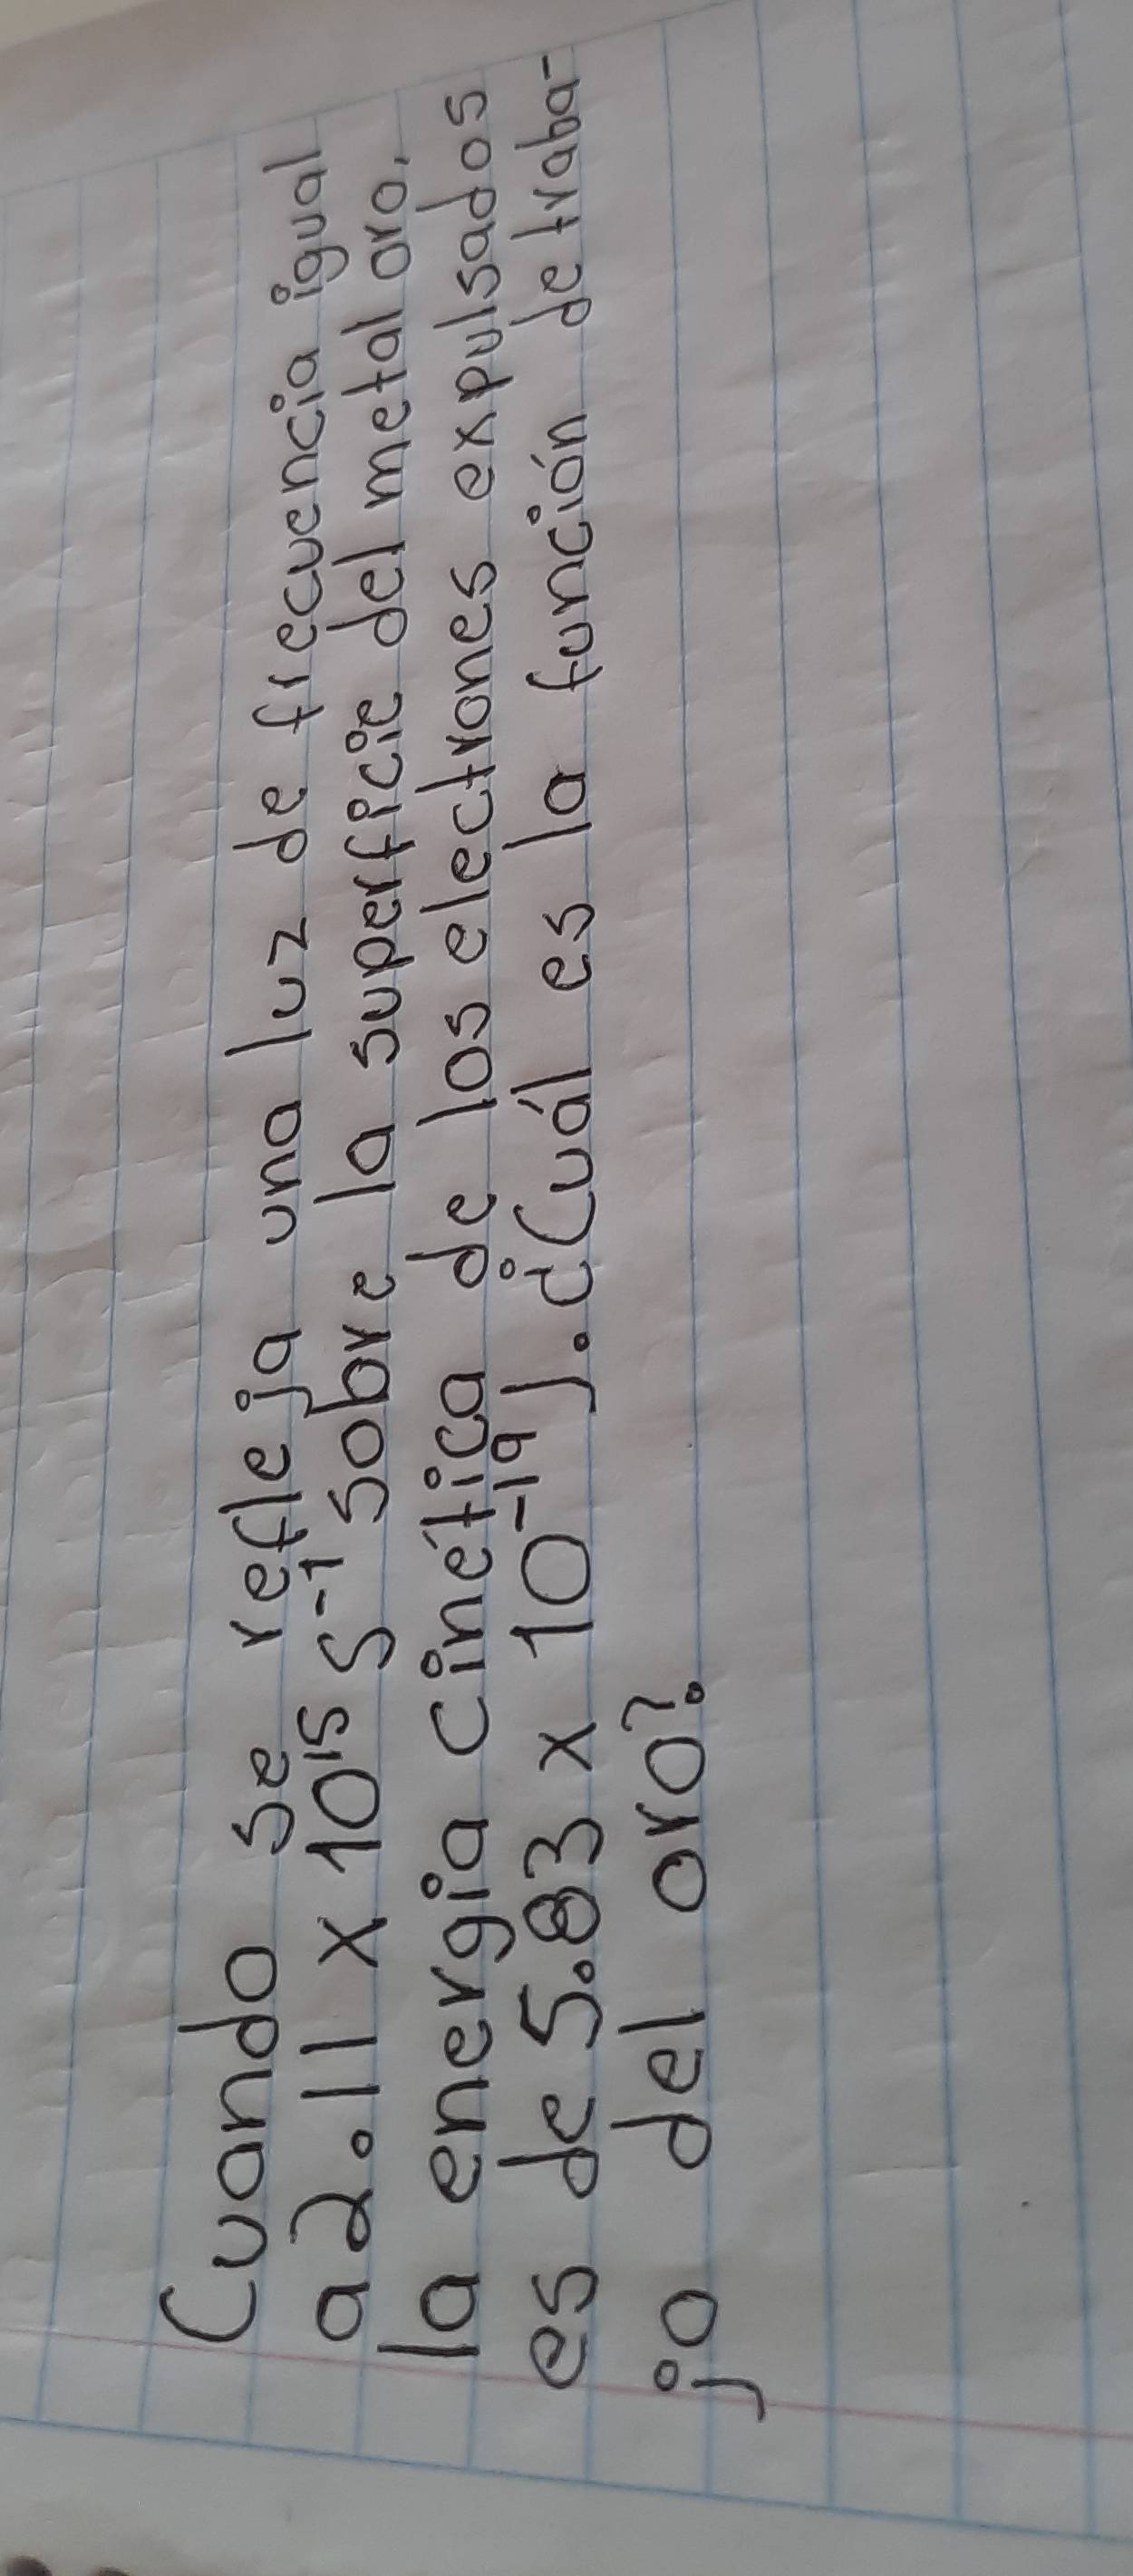 Cuando se refleja una luz de frecuencia igual
a 2.11 x 10¹⁵ s⁻¹ sobre la superficie del metal oro,
la energia cinética de los electrones expulsados
es de 5.83 x 10⁻¹⁹ J. ¿Cuál es la función de traba-
jo del oro?